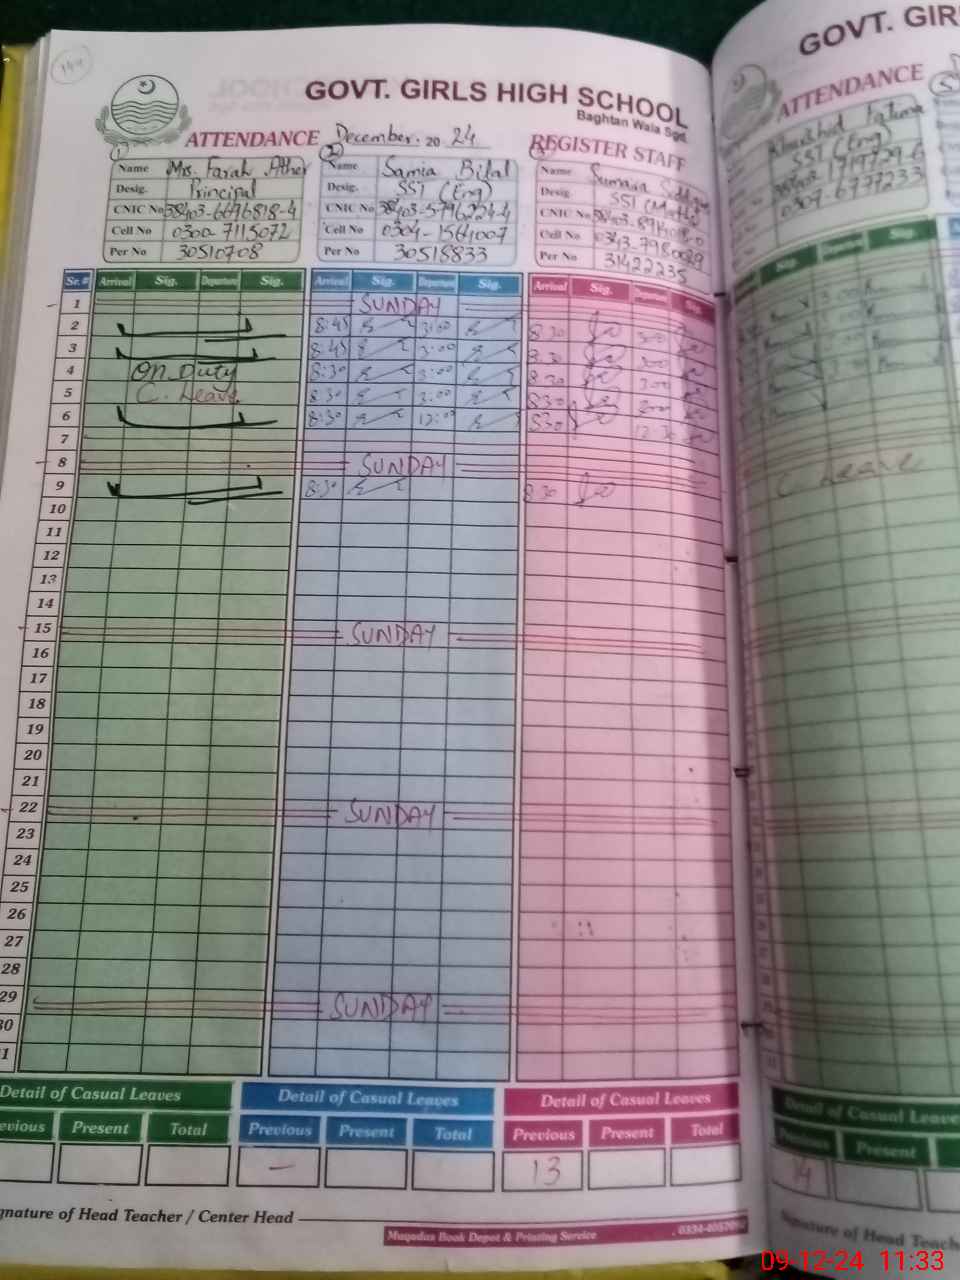 144
GOVT. GIRLS HIGH SCHOOL
Baghtan Wala Sgd.
ATTENDANCE December. 2024 REGISTER STAFF
(1)
Name Mrs. Farah Ather
Desig. Principal
CNIC No 38403-6696818-4
Cell No 0300-7115072
Per No 30510708
(2)
Name Samia Bilal
Desig. SST (Eng)
CNIC No 38403-5796224-4
Cell No 0304-1564007
Per No 30518833
(3)
Name Sumaira
Desig. SST (Maths)
CNIC No 38403-8914018-0
Cell No 0343-7980029
Per No 31422235
Sr. # Arrival Sig. Departure Sig. Arrival Sig. Departure Sig. Arrival Sig. Departure Sig.
1 SUNDAY
2 8:45 3:00 8 30 300
3 8:45 3:00 8 30 300
4 On Duty 8:30 3:00 8 30 300
5 C. Leave 8:30 3:00 8 30 300
6 8:30 12:00 830 12:30
7
8 SUNDAY
9 8:30 8 30
10
11
12
13
14
15 SUNDAY
16
17
18
19
20
21
22 SUNDAY
23
24
25
26
27
28
29 SUNDAY
30
31
Detail of Casual Leaves Detail of Casual Leaves Detail of Casual Leaves
Previous Present Total Previous Present Total Previous Present Total
– 13
Signature of Head Teacher / Center Head
Muqadas Book Depot & Printing Service
GOVT. GIR
ATTENDANCE
(5)
Khurshid Fatima
SST (Eng)
0304-6777233
Sig. Departure Sig.
3:00
C Leave
Detail of Casual Leave
Previous Present
14
Signature of Head Teach
09-12-24 11:33